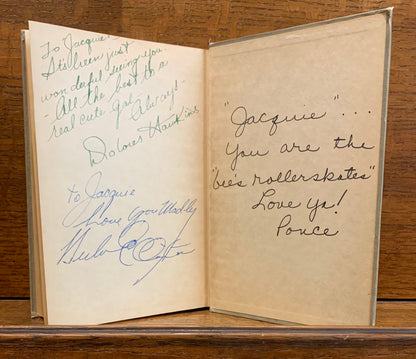 To Jacquie -
It's been just
wonderful seeing you -
- All the best to a
real cute gal -
Always -
Dolores Hawkins
To Jacquie
I love you Madly
"Jacquie" ...
You are the
"bee's rollerskates"
Love Ya!
Ponce